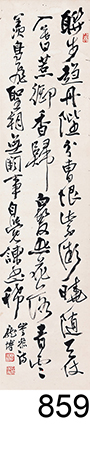 聯步趨丹陛分曹限紫微曉隨天仗
入暮惹御香歸白髮悲花落青雲
羨鳥飛聖朝無闕事自覺諫書稀
岑參詩
859